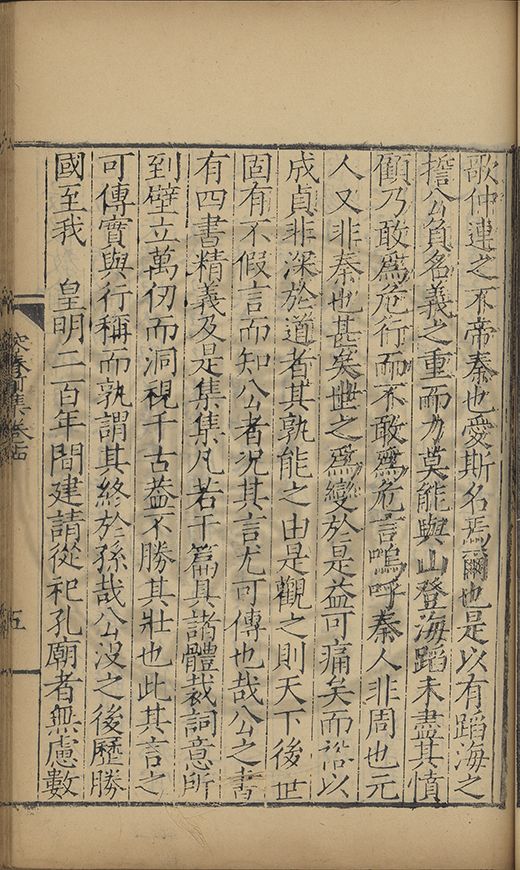 歌仲連之不帝秦也愛斯名焉爾也是以有蹈海之
擔公負名義之重而力莫能與山登海蹈未盡其憤
傾乃敢為危行而不敢為危言嗚呼秦人非周也元
人又非秦也甚矣世之為變於是益可痛矣而裕以
成貞非深於道者其孰能之由是觀之則天下後世
固有不假言而知公者況其言尤可傳也哉公之書
有四書精義及是集集凡若干篇具諸體裁詞意所
到壁立萬仞而洞視千古蓋不勝其壯也此其言之
可傳實與行稱而孰謂其終於孫哉公沒之後歷勝
國至我　皇明二百年間建請從祀孔廟者無慮數
集卷
五